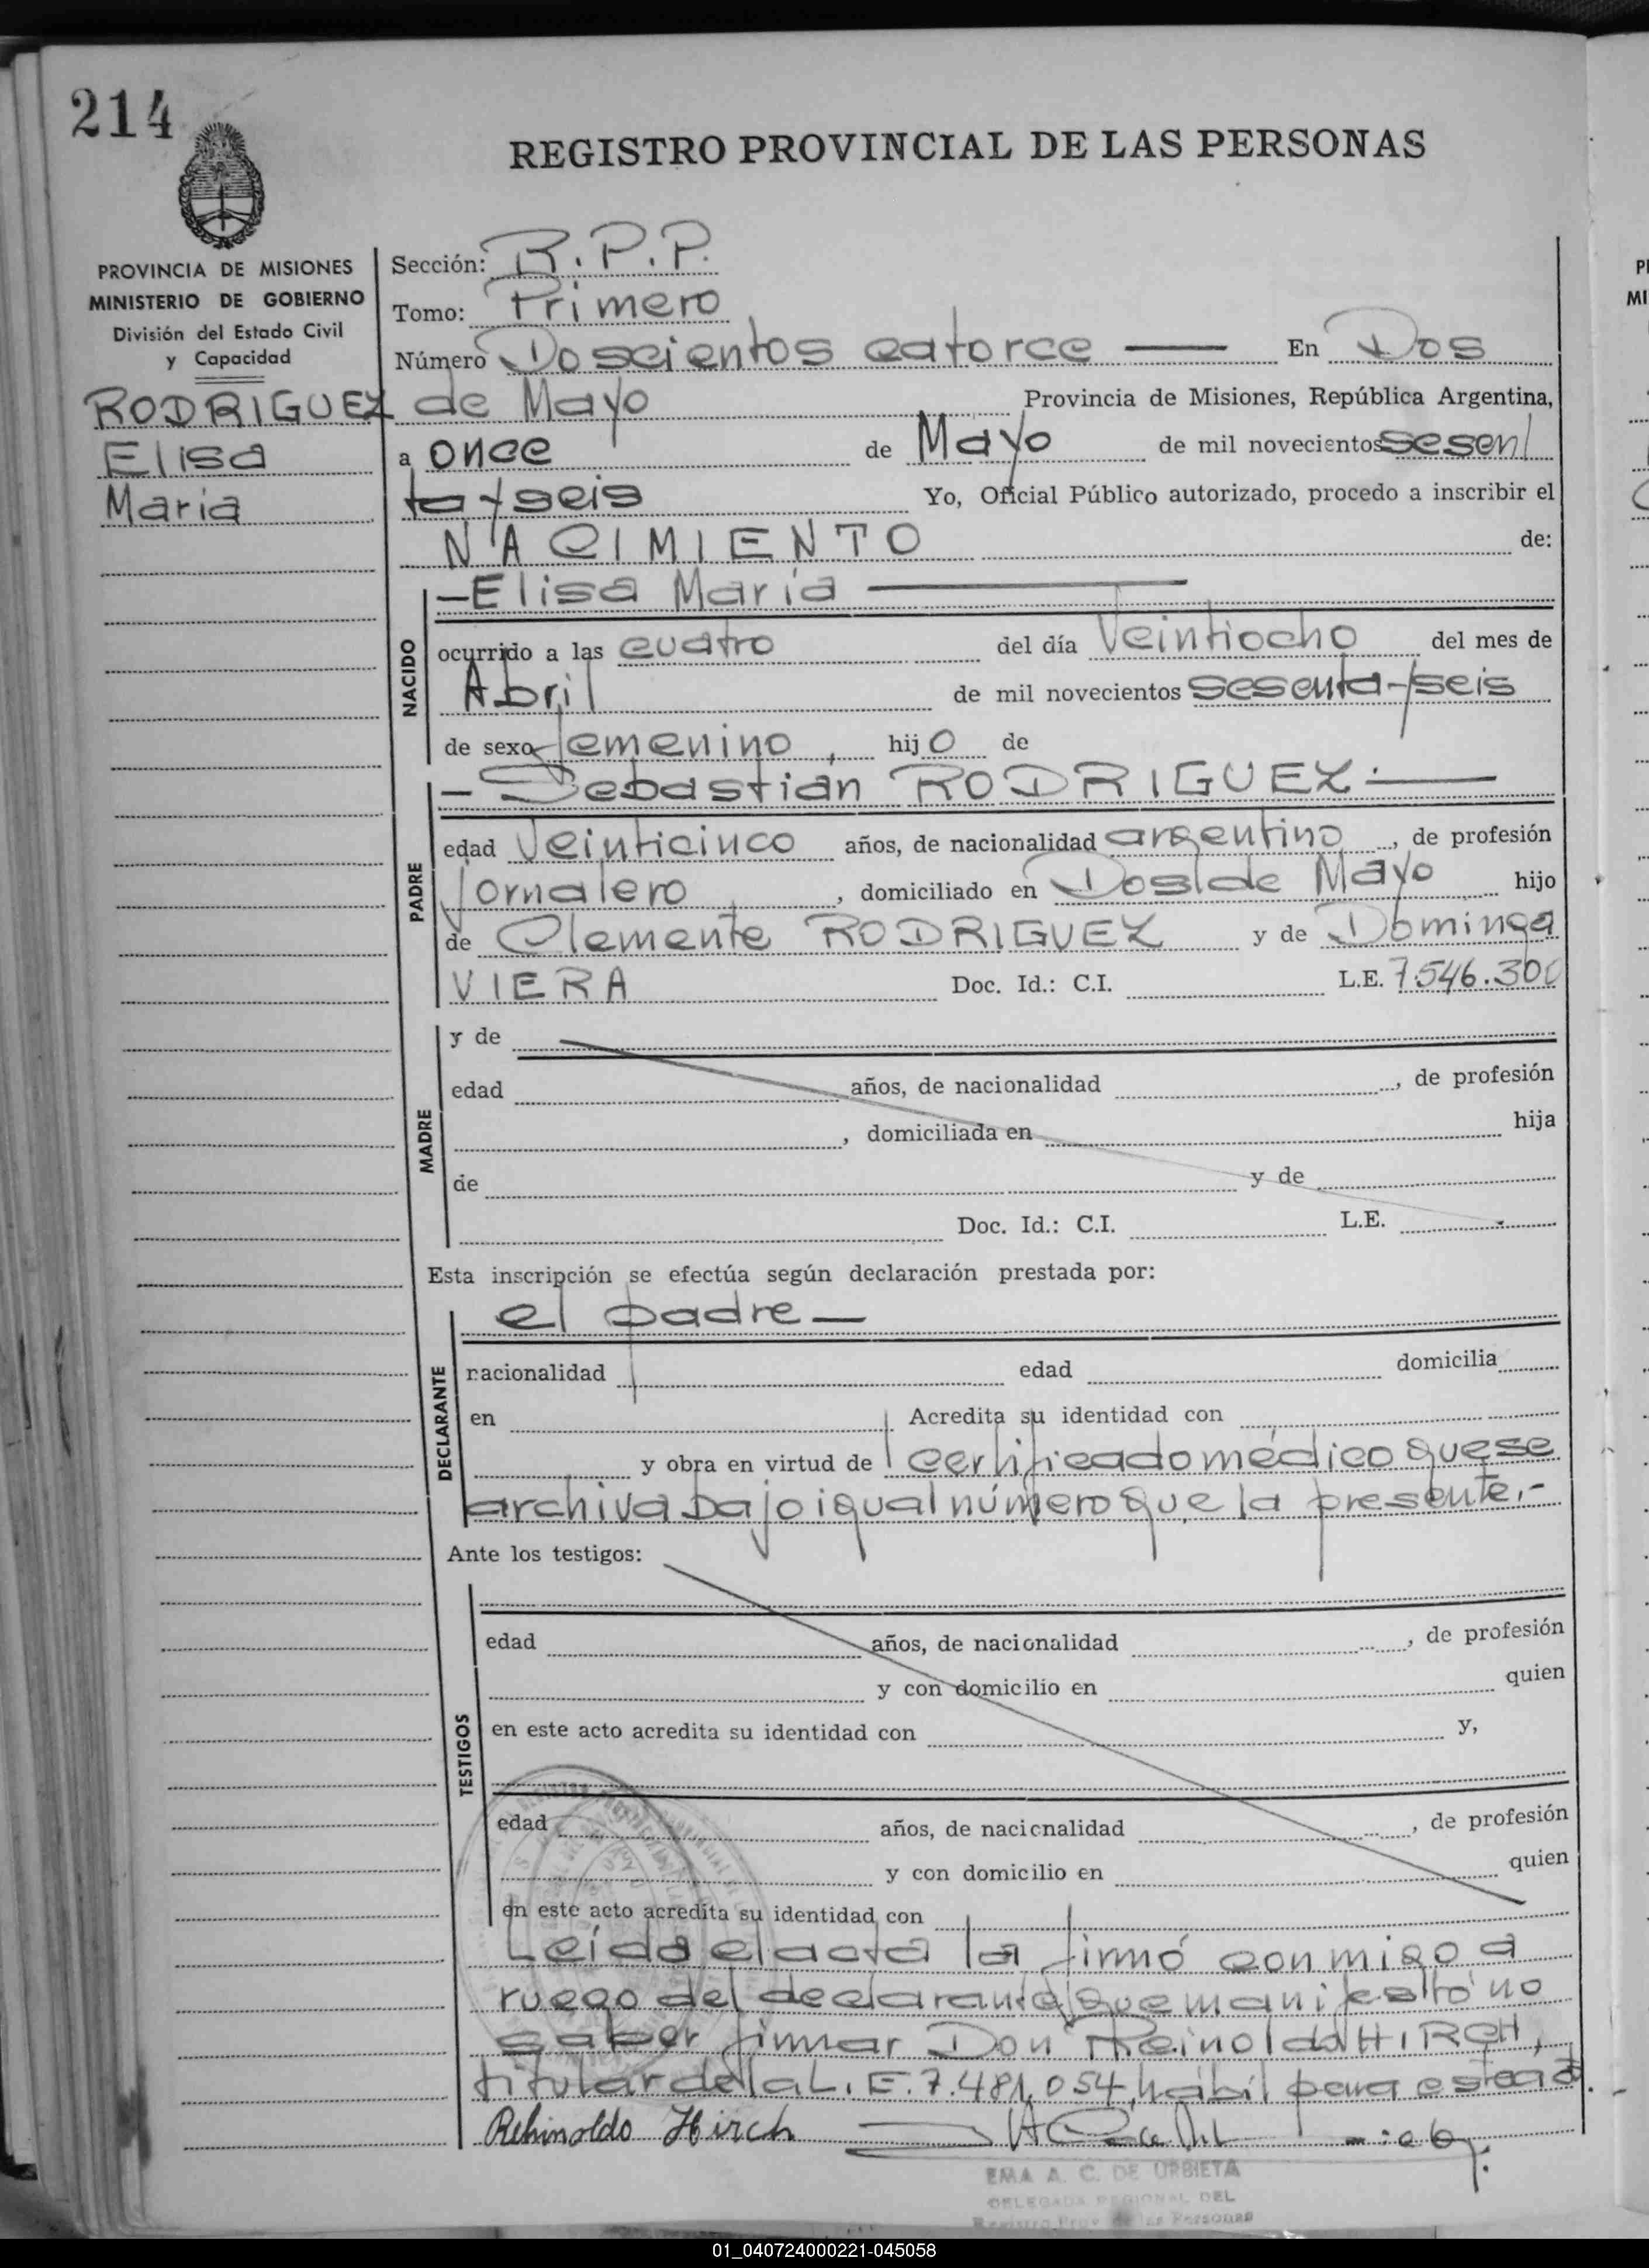 214
REGISTRO PROVINCIAL DE LAS PERSONAS
PROVINCIA DE MISIONES
MINISTERIO DE GOBIERNO
División del Estado Civil
y Capacidad
RODRIGUEZ
Elisa
Maria
Sección: R.P.P.
Tomo: Primero
Número Doscientos catorce — En Dos
de Mayo Provincia de Misiones, República Argentina,
a once de Mayo de mil novecientos sesen/
ta y seis Yo, Oficial Público autorizado, procedo a inscribir el
NACIMIENTO de:
NACIDO
—Elisa María —
ocurrido a las cuatro del día Veintiocho del mes de
Abril de mil novecientos sesenta y seis
de sexo femenino, hijo de
PADRE
— Sebastián RODRIGUEZ.—
edad Veinticinco años, de nacionalidad argentino, de profesión
jornalero, domiciliado en Dos de Mayo hijo
de Clemente RODRIGUEZ y de Dominga
VIERA Doc. Id.: C.I. L.E. 7.546.300
MADRE
y de
edad años, de nacionalidad , de profesión
, domiciliada en hija
de y de
Doc. Id.: C.I. L.E.
Esta inscripción se efectúa según declaración prestada por:
DECLARANTE
el padre —
nacionalidad edad domicilia
en Acredita su identidad con
y obra en virtud de certificado médico que se
archiva bajo igual número que la presente.-
Ante los testigos:
TESTIGOS
edad años, de nacionalidad , de profesión
y con domicilio en quien
en este acto acredita su identidad con y,
edad años, de nacionalidad , de profesión
y con domicilio en quien
en este acto acredita su identidad con
Leída el acta la firmó conmigo a
ruego del declarante que manifestó no
saber firmar Don Reinoldo HIRCH,
titular de la L.E. 7.481.054, hábil para este
Rehinoldo Hirch
EMA A. C. DE URBIETA
DELEGADA REGIONAL DEL
Registro Prov. de las Personas
01_040724000221-045058